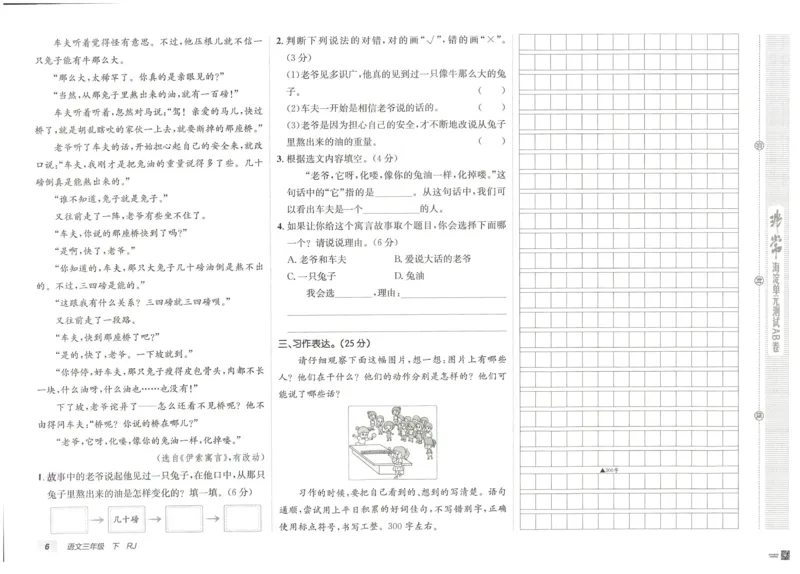 车夫听着觉得怪有意思。不过,他压根儿就不信一
只兔子能有牛那么大。
“那么大,太稀罕了。你真的是亲眼见的?”
“当然,从那兔子里熬出来的油,就有一百磅!”
车夫听着听着,忽然对马说:“驾!亲爱的马儿,快过
桥了,就是胡乱瞎吹的家伙一上去,就要断掉的那座桥。”
老爷听了车夫的话,开始担心起自己的安全来,就改
口说:“车夫,我刚才是把兔油的重量说得多了些。几十
磅倒真是能熬出来的。”
“谁不知道,兔子就是兔子。”
又往前走了一阵,老爷有些坐不住了。
“车夫,你说的那座桥快到了吗?”
“是啊,快了,老爷。”
“你知道的,车夫,那只大兔子几十磅油倒是熬不出
的。不过,三四磅是能的。”
“这跟我有什么关系?三四磅就三四磅呗。”
又往前走了一段路。
“车夫,快到那座桥了吧?”
“是的,快了,老爷。一下坡就到。”
“你停停,好车夫,那只兔子瘦得皮包骨头,肉都不长
一块,什么油呀,什么油也……也没有!”
下了坡,老爷诧异了——怎么还看不见桥呢?他不
由得问车夫:“桥呢?你说的桥在哪儿?”
“老爷,它呀,化喽,像你的兔油一样,化掉喽。”
(选自《伊索寓言》,有改动)
1.故事中的老爷说起他见过一只兔子,在他口中,从那只
兔子里熬出来的油是怎样变化的?填一填。(6分)
→ 几十磅 → →
6 语文三年级 下 RJ
2.判断下列说法的对错,对的画“√”,错的画“×”。
(3分)
(1)老爷见多识广,他真的见到过一只像牛那么大的兔
子。 ( )
(2)车夫一开始是相信老爷说的话的。 ( )
(3)老爷是因为担心自己的安全,才不断地改说从兔子
里熬出来的油的重量。 ( )
3.根据选文内容填空。(4分)
“老爷,它呀,化喽,像你的兔油一样,化掉喽。”这
句话中的“它”指的是________。从这句话中,我们可
以看出车夫是一个____________的人。
4.如果让你给这个寓言故事取个题目,你会选择下面哪
一个?请说说理由。(6分)
A.老爷和车夫 B.爱说大话的老爷
C.一只兔子 D.兔油
我会选________,理由:______________________
三、习作表达。(25分)
请仔细观察下面这幅图片,想一想:图片上有哪些
人?他们在干什么?他们的动作分别是怎样的?他们可
能说了哪些话?
习作的时候,要把自己看到的、想到的写清楚。语句
通顺,尝试用上平日积累的好词佳句,不写错别字,正确
使用标点符号,书写工整。300字左右。
▲300字
海淀单元测试AB卷